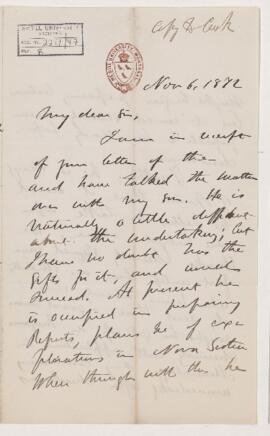 Copy to Cook
McGILL UNIVERSITY
ARCHIVES
ACC. NO. 2211/47
REF. 8
McGILL UNIVERSITY ARCHIVES
Nov 6, 1872
My dear Sir,
I am in receipt
of your letter of the
and have talked the matter
over with my son. He is
naturally a little diffident
about the undertaking, but
I have no doubt has the
gifts for it and would
succeed. At present he
is occupied in preparing
Reports, plans &c of ex
plorations in Nova Scotia
When through with this he